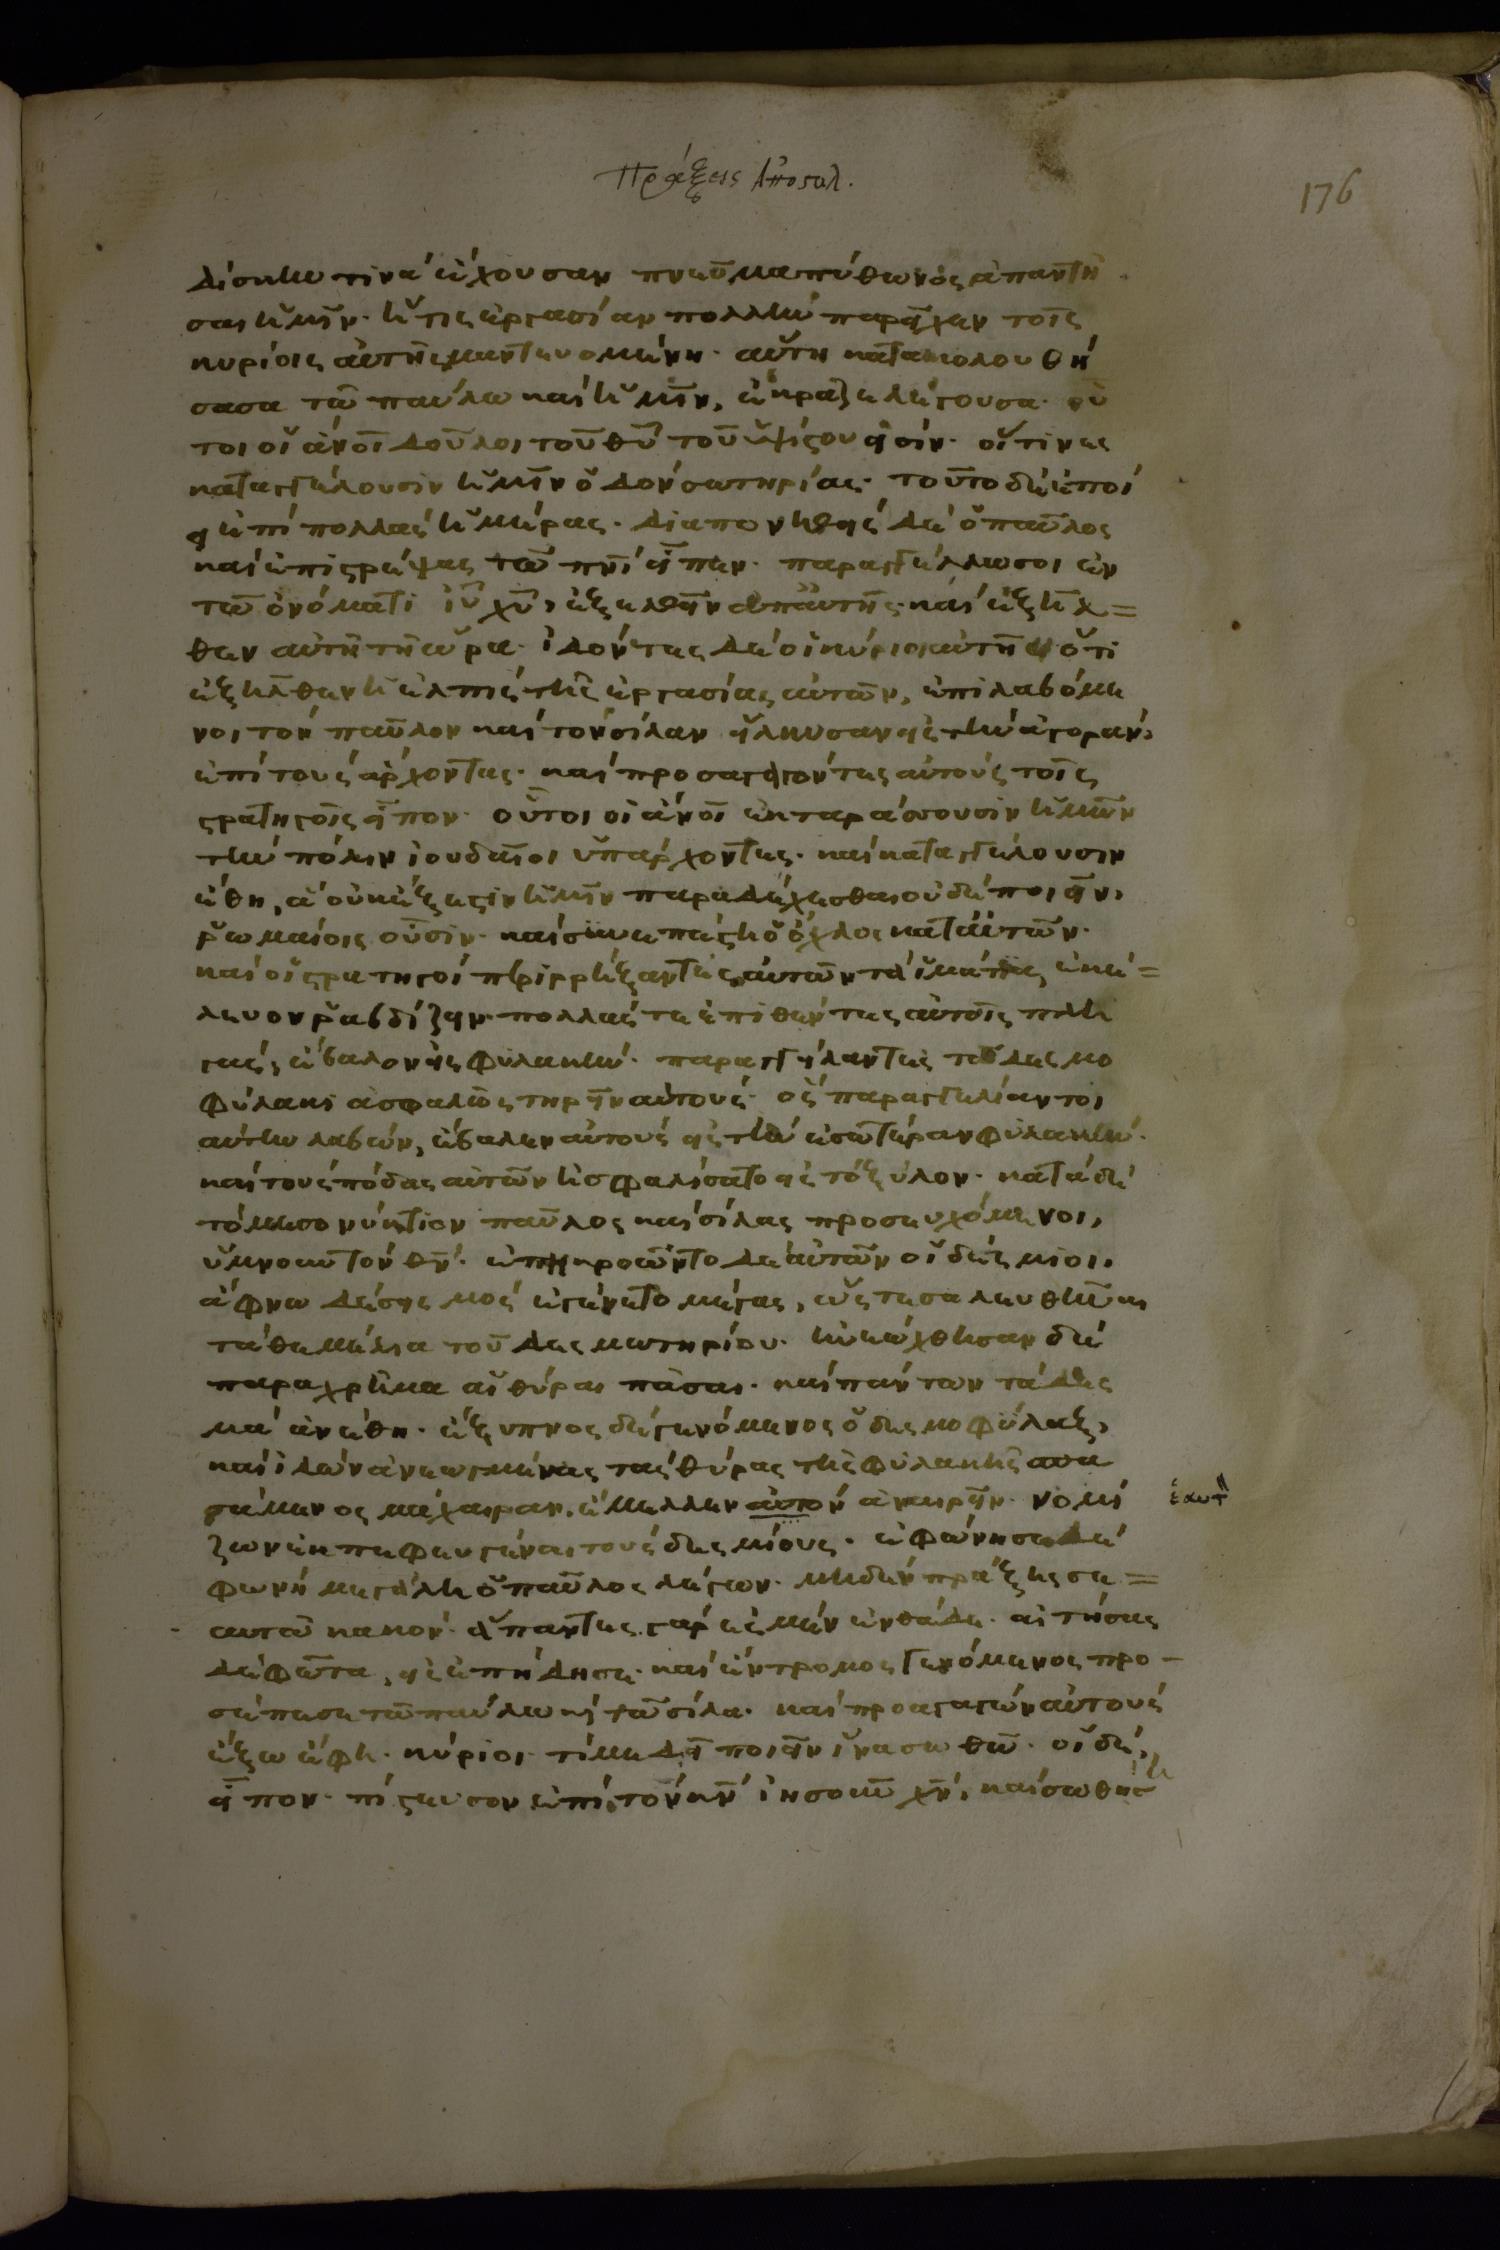 Πράξεις Ἀποστολ.
176
δίσκην τινὰ ἔχουσαν πνεῦμα πύθωνος ἀπαντῆ
σαι ἡμῖν· ἥτις ἐργασίαν πολλὴν παρεῖχεν τοῖς
κυρίοις αὐτῆς μαντευομένη· αὕτη κατακολουθή
σασα τῶ παύλω καὶ ἡμῖν, ἔκραζε λέγουσα· οὗ
τοι οἱ ἀνοι δοῦλοι τοῦ θυ τοῦ ὑψίστου εἰσίν· οἵτινες
καταγγέλουσιν ἡμῖν ὁδὸν σωτηρίας· τοῦτο δὲ ἐποί
ει ἐπὶ πολλὰς ἡμέρας· διαπονηθεὶς δὲ ὁ παῦλος
καὶ ἐπιστρέψας τῶ πνι εἶπεν· παραγγέλλω σοι ἐν
τῶ ὀνόματι ιυ χυ, ἐξελθεῖν ἀπ' αὐτῆς· καὶ ἐξῆλ=
θεν αὐτῆ τῆ ὥρα· ἰδόντες δὲ οἱ κύριοι αὐτῆς ὅτι
ἐξῆλθεν ἡ ἐλπὶς τῆς ἐργασίας αὐτῶν, ἐπιλαβόμε
νοι τὸν παῦλον καὶ τὸν σίλαν εἵλκυσαν εἰς τὴν ἀγορὰν,
ἐπὶ τοὺς ἄρχοντας· καὶ προσαγαγόντες αὐτοὺς τοῖς
στρατηγοῖς εἶπον· οὗτοι οἱ ἀνοι ἐκταράσσουσιν ἡμῶν
τὴν πόλιν ἰουδαῖοι ὑπάρχοντες· καὶ καταγγέλουσιν
ἔθη, ἃ οὐκ ἔξεστιν ἡμῖν παραδέχεσθαι οὐδὲ ποιεῖν,
ῥωμαίοις οὖσιν· καὶ συνεπέστη ὁ ὄχλος κατ' αὐτῶν·
καὶ οἱ στρατηγοὶ περιρρήξαντες αὐτῶν τὰ ἱμάτια, ἐκέ=
λευον ῥαβδίζειν· πολλάς τε ἐπιθέντες αὐτοῖς πλη
γὰς, ἔβαλον εἰς φυλακήν· παραγγείλαντες τῶ δεσμο
φύλακι ἀσφαλῶς τηρεῖν αὐτούς· ὃς παραγγελίαν τοι
αύτην λαβὼν, ἔβαλεν αὐτοὺς εἰς τὴν ἐσωτέραν φυλακήν·
καὶ τοὺς πόδας αὐτῶν ἠσφαλίσατο εἰς τὸ ξύλον· κατὰ δὲ
τὸ μεσονύκτιον παῦλος καὶ σίλας προσευχόμενοι,
ὕμνουν τὸν θν· ἐπηκροῶντο δὲ αὐτῶν οἱ δέσμιοι,
ἄφνω δὲ σεισμὸς ἐγένετο μέγας, ὥστε σαλευθῆναι
τὰ θεμέλια τοῦ δεσμωτηρίου· ἠνεώχθησαν δὲ
παραχρῆμα αἱ θύραι πᾶσαι· καὶ πάντων τὰ δεσ
μὰ ἀνέθη· ἔξυπνος δὲ γενόμενος ὁ δεσμοφύλαξ,
καὶ ἰδὼν ἀνεωγμένας τὰς θύρας τῆς φυλακῆς σπα
σάμενος μάχαιραν, ἔμελλεν αὐτὸν ἀναιρεῖν· νομί
ἑαυτ
ζων ἐκπεφευγέναι τοὺς δεσμίους· ἐφώνησε δὲ
φωνῆ μεγάλη ὁ παῦλος λέγων· μηδὲν πράξης σε=
αυτῶ κακόν· ἅπαντες γάρ ἐσμεν ἐνθάδε· αἰτήσας
δὲ φῶτα, εἰσεπήδησε· καὶ ἔντρομος γενόμενος προ-
σέπεσε τῶ παύλω κὶ τῶ σίλα· καὶ προαγαγὼν αὐτοὺς
ἔξω ἔφη· κύριοι τί με δεῖ ποιεῖν ἵνα σωθῶ· οἱ δὲ,
εἶπον· πίστευσον ἐπὶ τὸν κν ἰησοῦν χν, καὶ σωθήσῃ